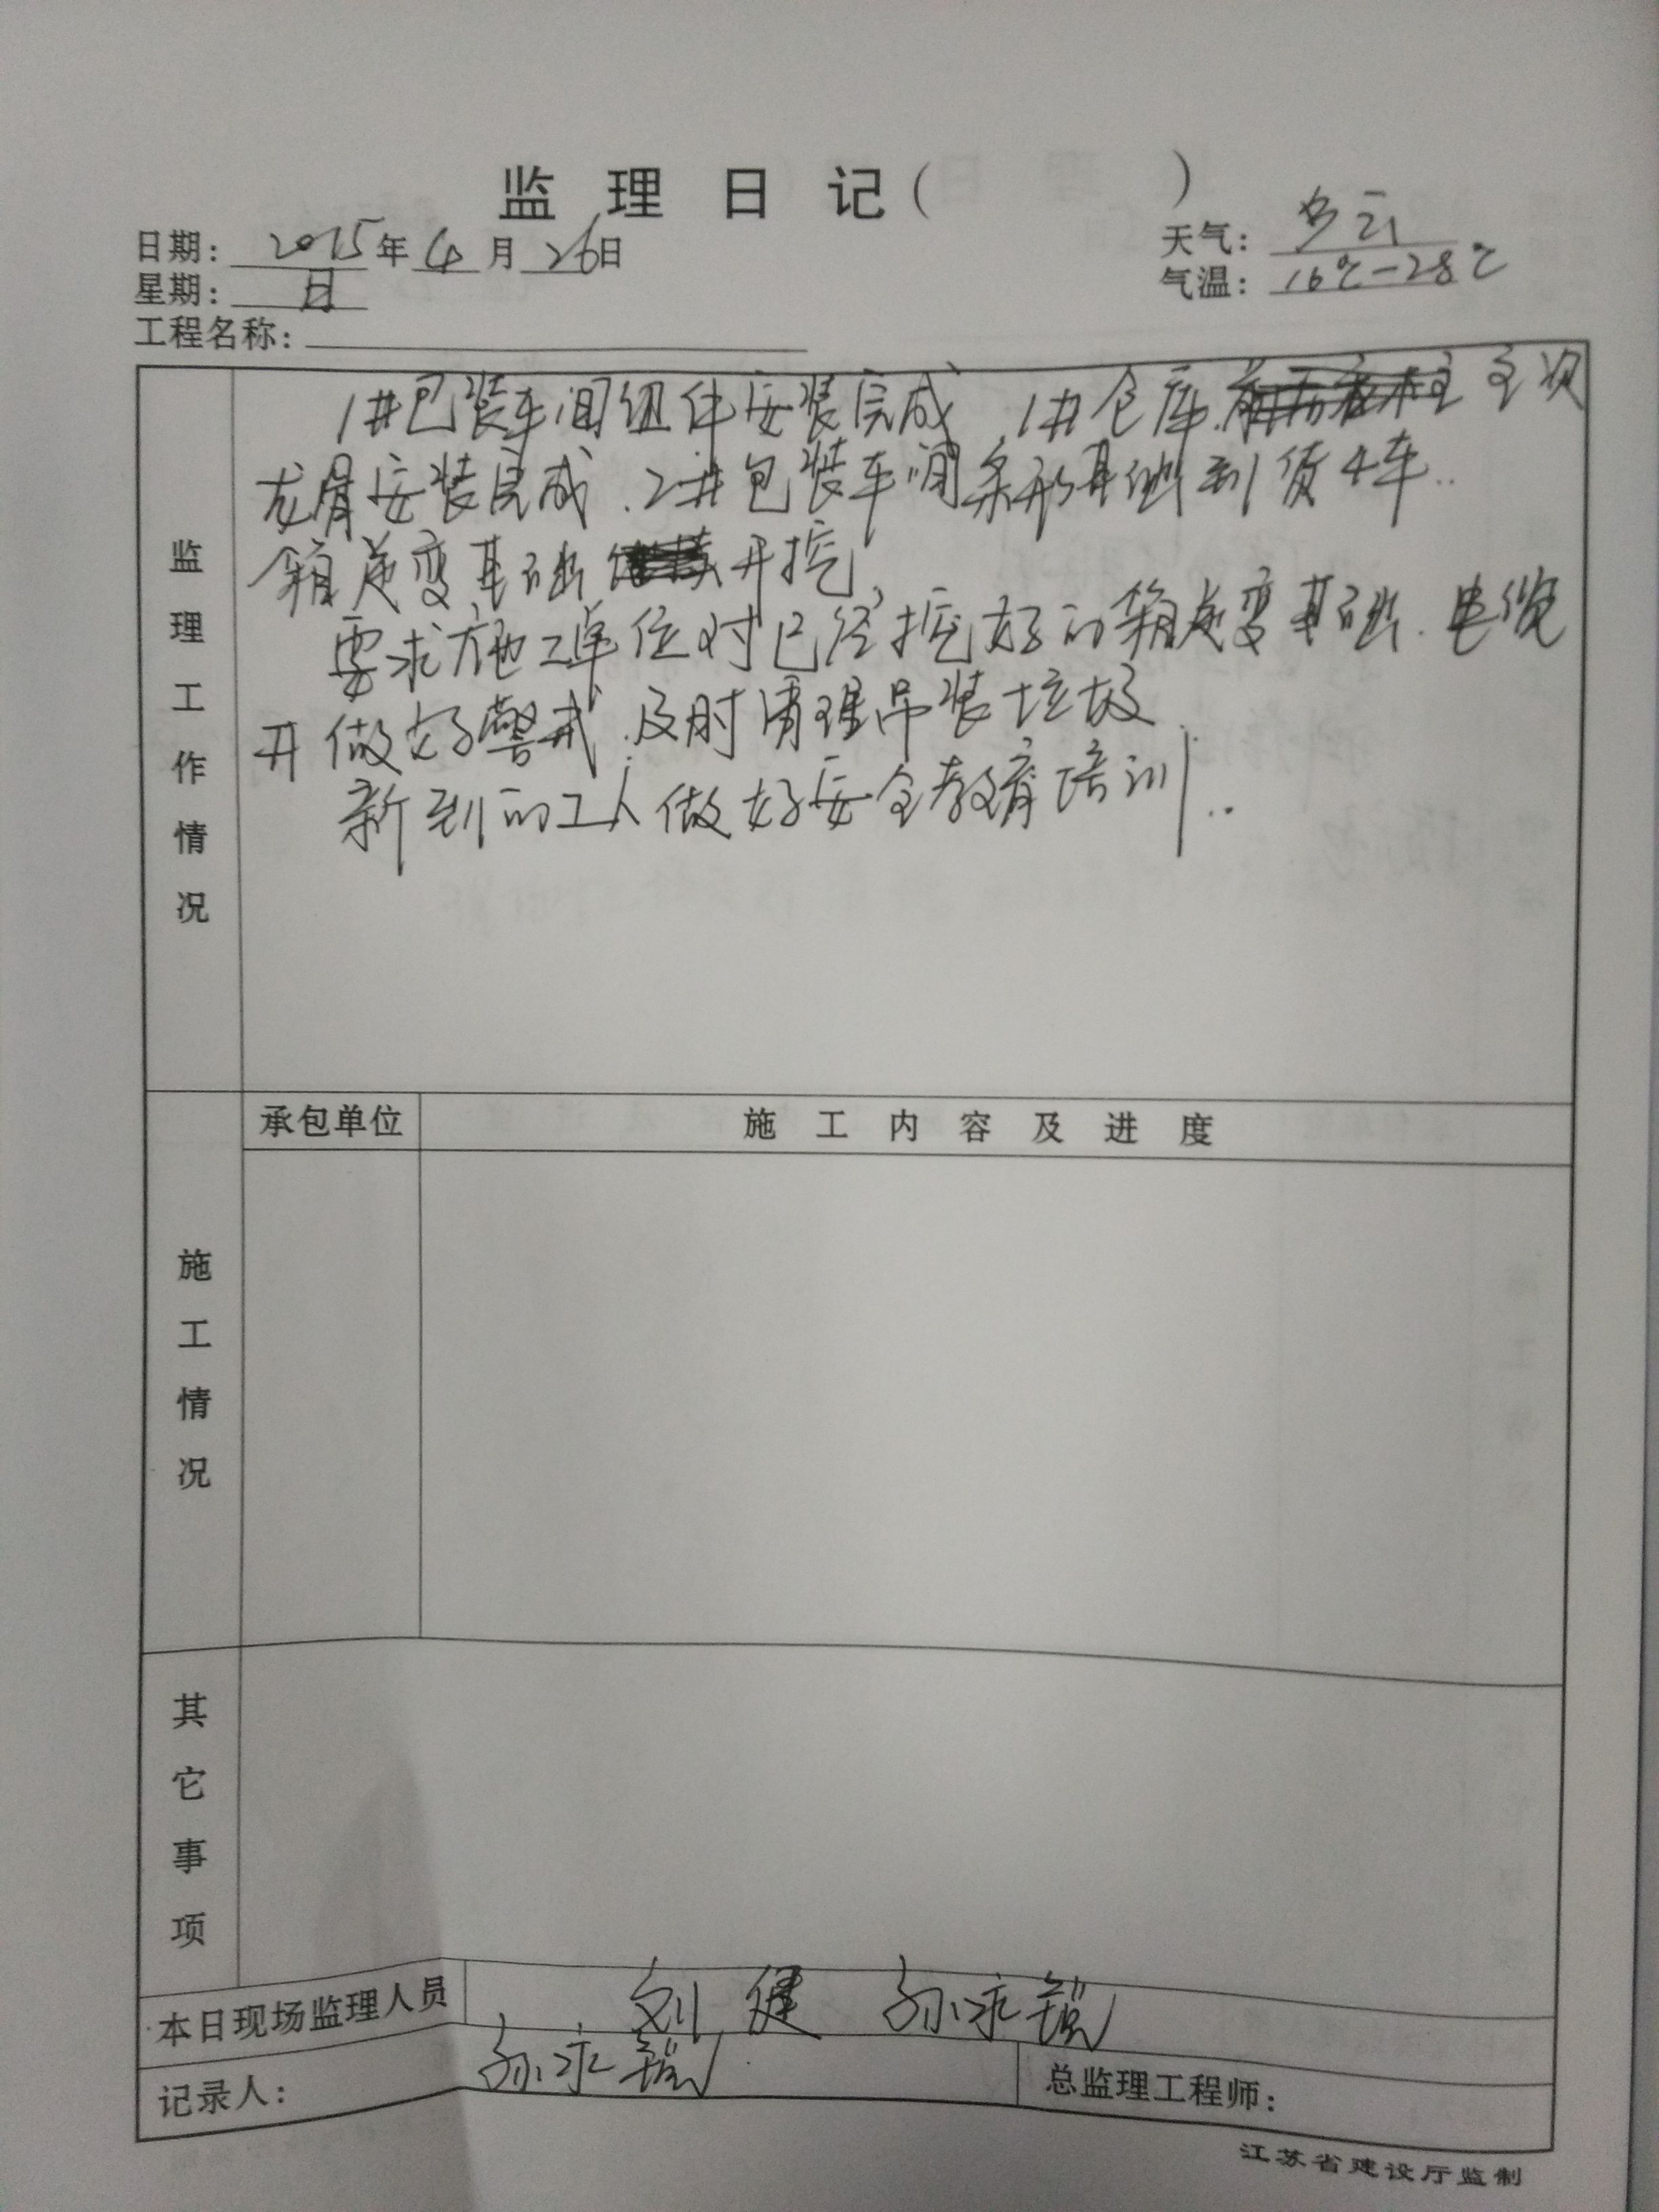 监理日记（ ）
日期：2015年4月26日
天气：多云
星期：日
气温：16℃-28℃
工程名称：
监理工作情况
1#包装车间组件安装完成、1#仓库 主次
龙骨安装完成．2#包装车间条形基础到货4车．
箱逆变基础 开挖，
要求施工单位对已经挖好的箱逆变基础．电缆
开做好警戒．及时清理吊装垃圾．
新到的工人做好安全教育培训．
施工情况
承包单位 施工内容及进度
其它事项
本日现场监理人员 刘健
记录人：
总监理工程师：
江苏省建设厅监制